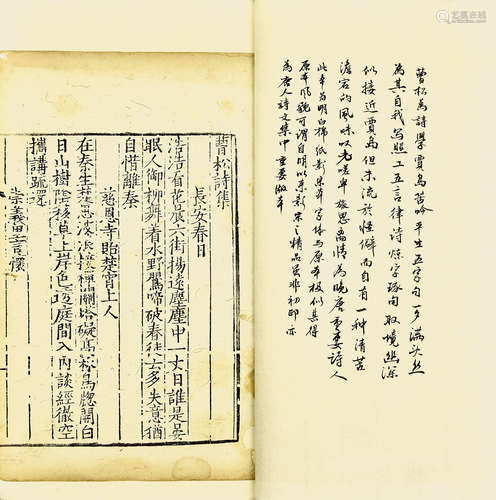 曹松為詩學賈島苦吟平生五字句一夕滿头丝
為其自我写照工五言律诗炼字琢句取境幽深
似接近賈島但未流於怪僻而自有一种清苦
澹宕的風味以嗟卑旅思离情為晚唐重要诗人
此本为明白棉纸影宋本写体与原本极似甚得
原本风貌可谓自明以来影宋之精品虽非初印亦
為唐人诗文集中重要版本
曹松詩集
長安春日
浩浩看花晨六街揚遠塵塵中一丈日誰是晏
眠人御柳舞着水野鶯啼破春徒云多失意猶
自惜離秦
慈恩寺貽楚霄上人
在秦生楚思波浪接禪關塔礙高松鳥牎開白
日山樹陰移草上岸色透庭間入內談經徹空
攜講疏還
崇義里言懷